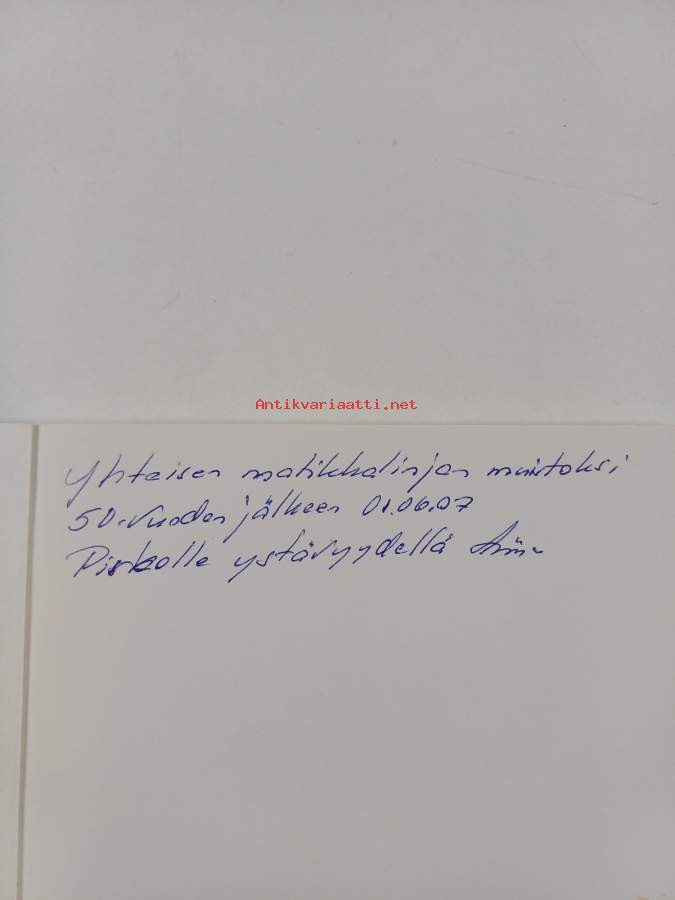 Antikvariaatti.net
Yhteisen matikkalinjan muistoksi
50-vuoden jälkeen 01.06.07
Pirkolle ystävyydellä